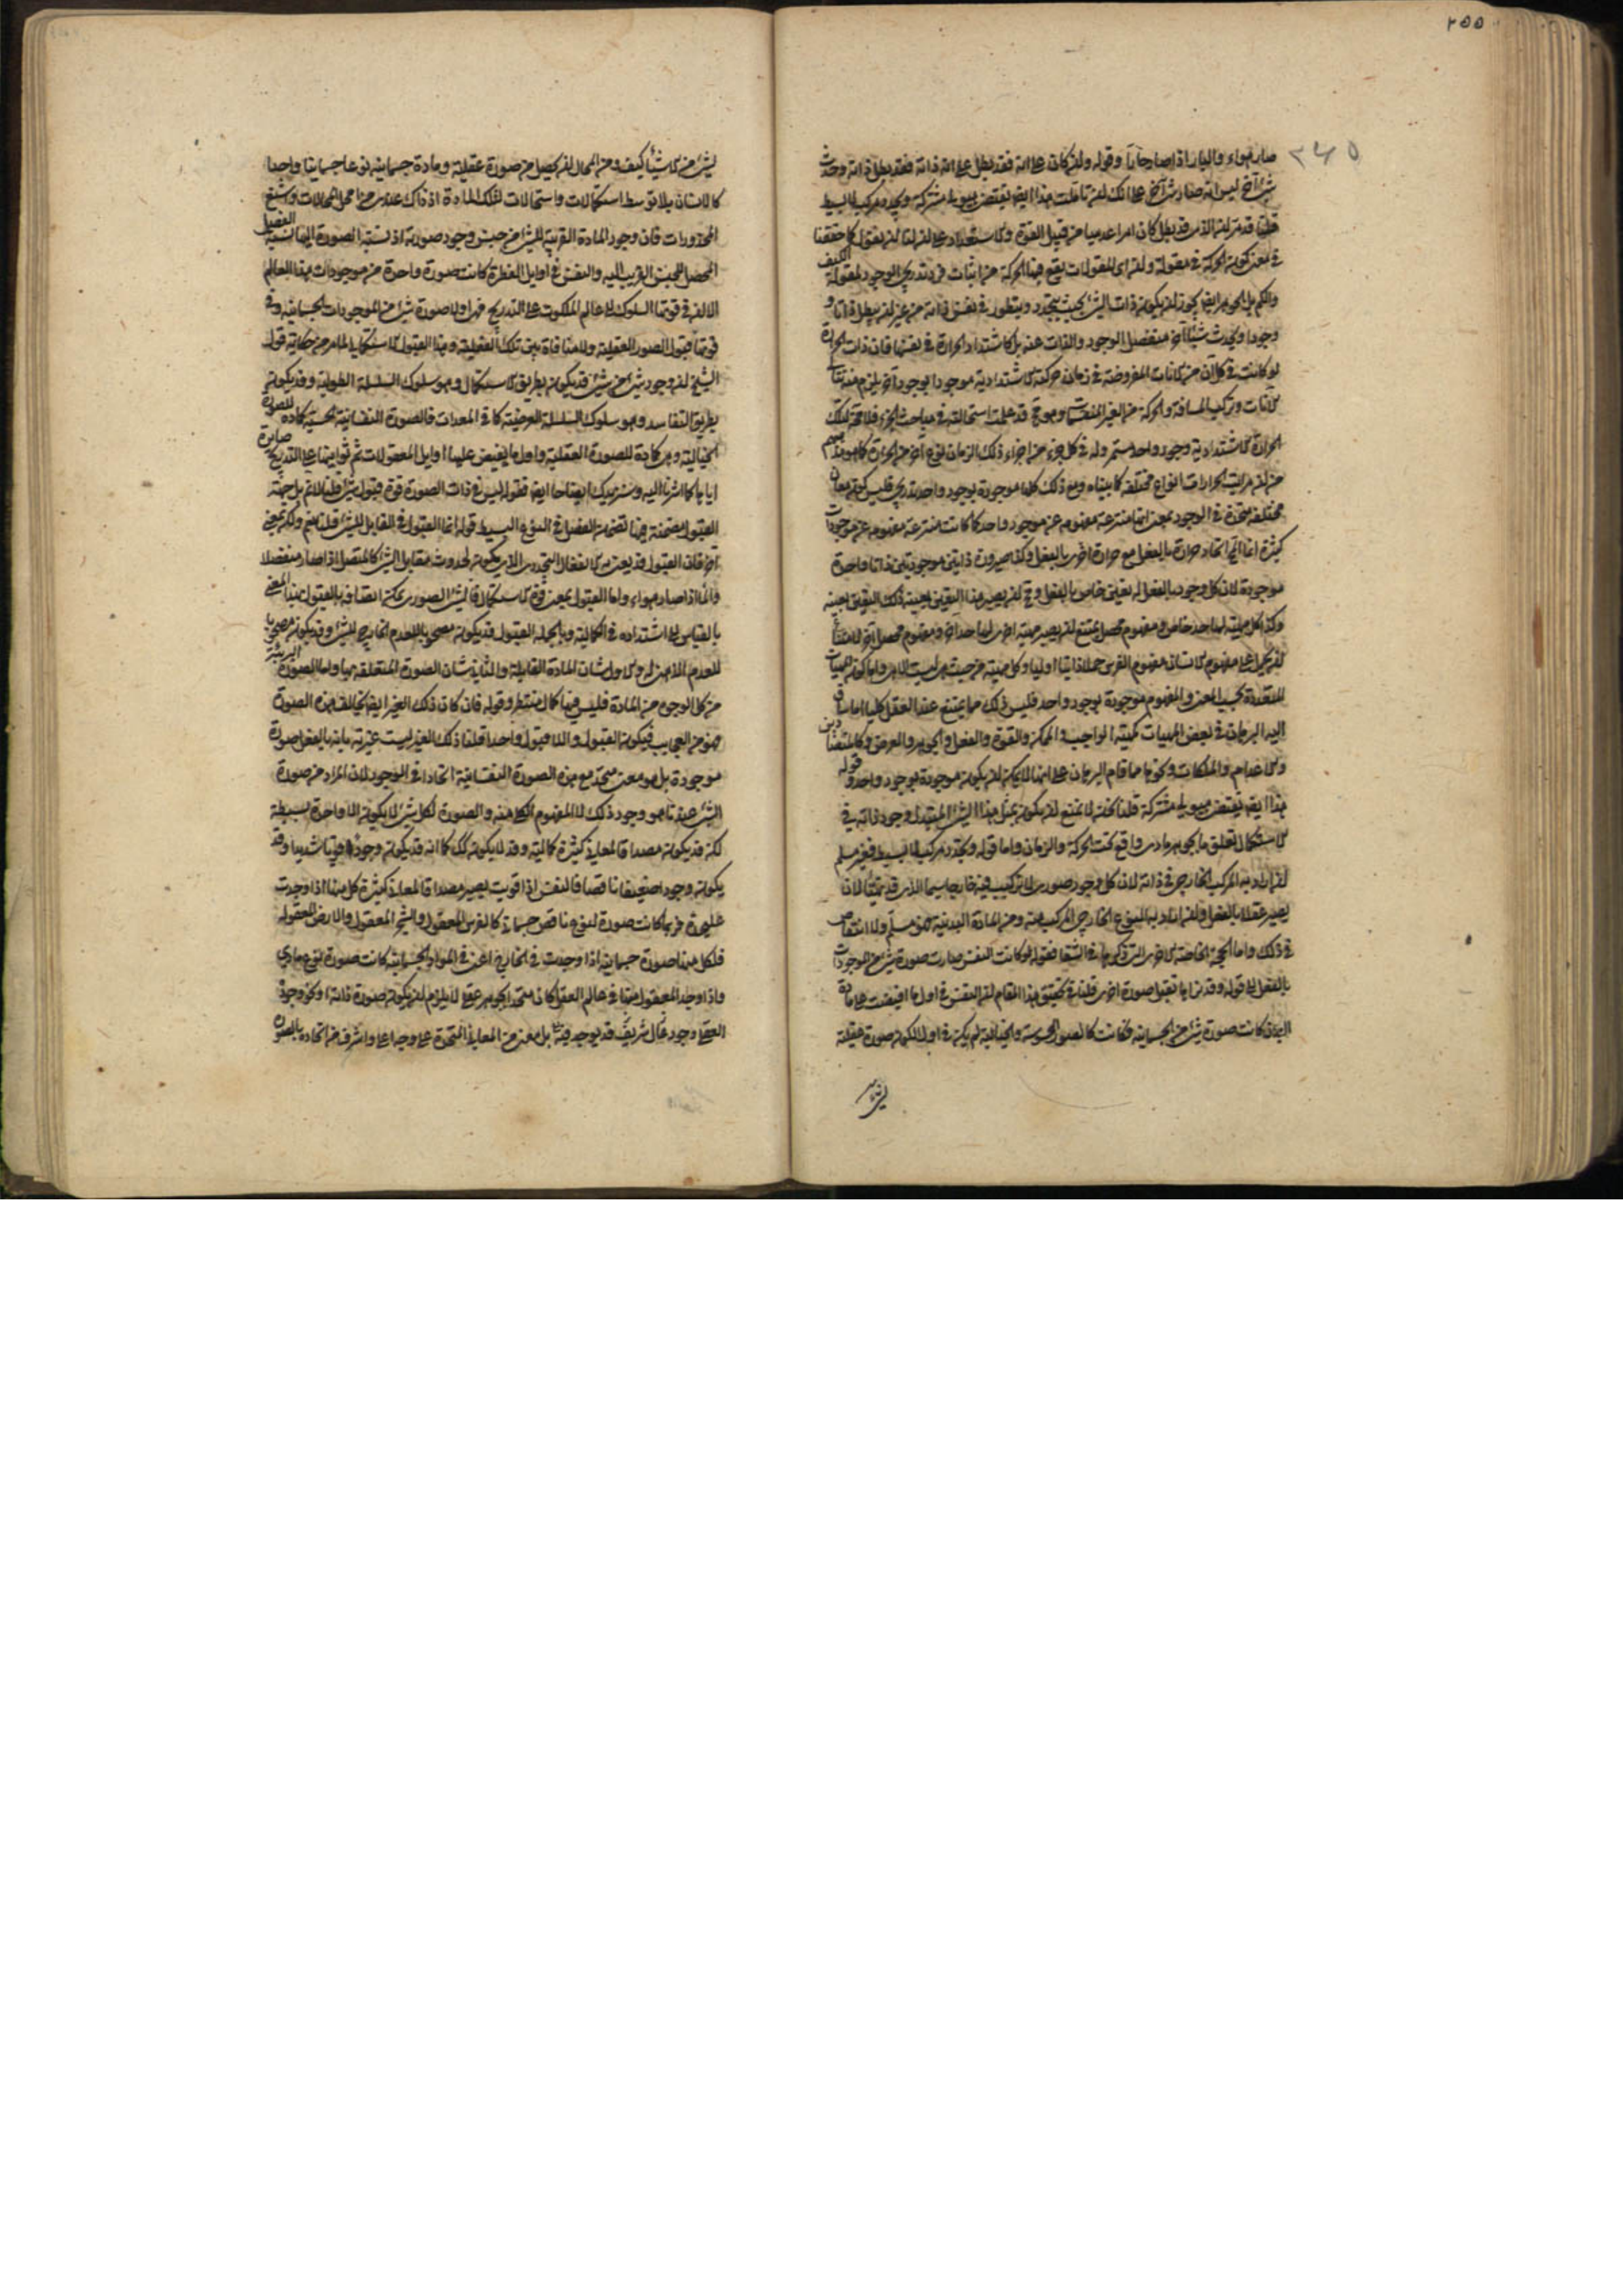 ٢٥٥
٢٤٥
صار هواء والنار اذا صار دخانا وقوله وان كان على انه فقد بطل على انه ذاته فقد بطل ذاته وحدث
شئ آخر ليس انه صار شيئا آخر على انك ان تاملت هذا ايضا يقتضي هيولى مشتركة وتجدد مركب لا بسيط
قلنا قد مر ان الذي قد بطل كان امرا عدميا من قبيل القوة والاستعداد على ان لنا ان نقول كما حققنا
في معنى كون الحركة في مقولة وان اي المقولات يقع فيها الحركة من اثبات فرد تدريجي الوجود لمقولة الكيف
والكم بل الجوهر ايضا يجوز ان يكون ذات الشئ بحيث يتجدد ويتطور في نفس ذاته من غير ان يبطل ذاتا و
وجودا ويحدث شيئا آخر منفصل الوجود والذات عنه بل كاشتداد الحرارة في نفسها فان ذات الحرارة
لو كانت في كل آن من الانات المفروضة في زمان حركته الاشتدادية موجودا بوجود آخر يلزم منه تتالي
الآنات وتركب المسافة والحركة من الغير المنقسمات وهو مح قد علمت استحالته في مباحث الجزء فلا محة لتلك
الحرارة الاشتدادية وجود واحد مستمر وله في كل جزء من اجزاء ذلك الزمان نوع آخر من الحرارة كما هو عندهم
من ان مراتب الحرارات انواع مختلفة كما بيناه ومع ذلك كلها موجودة بوجود واحد تدريجي فليس كون معان
مختلفة متحدة في الوجود بمعنى انها منتزعة مفهومه عن موجود واحد كما كانت منتزعة مفهومه عن موجودات
كثيرة انما المح اتحاد حرارة بالفعل مع حرارة اخرى بالفعل وكذا صيرورة ذاتين موجودتين ذاتا واحدة
موجودة لان كل وجود بالفعل له تعين خاص بالفعل ومح ان يصير هذا التعين بعينه ذلك التعين بعينه
وكذا كل مهية لها حد خاص ومفهوم محصل يمتنع ان يصير مهية اخرى لها حد آخر ومفهوم محصل آخر لامتناع
ان يحمل على مفهوم الانسان مفهوم الفرس حملا ذاتيا اوليا وكل مهية من حيث هي ليست الا هي واما كون المهيات
المتعددة بحسب المعنى والمفهوم موجودة بوجود واحد فليس ذلك مما يمتنع عند العقل كليا الا ما ساق
اليه البرهان في بعض المهيات كمهية الواجب والممكن والقوة والفعل والجوهر والعرض وكالمتضادين
والاعدام والملكات ونحوها مما قام البرهان على انها لا يمكن ان يكون موجودة بوجود واحد وقوله
هذا ايضا يقتضي هيولى مشتركة قلنا نحن لا نمنع ان يكون مثل هذا الشئ المتبدل وجود ذاته في
الاستكمال تعلق ما بجوهر مادي واقع تحت الحركة والزمان واما قوله وتجدد مركب لا بسيط فغير مسلم
ان اراد به المركب الخارجي في ذاته لان كل وجود صوري لا تركيب فيه خارجا سيما الذي قد تهيأ لان
يصير عقلا بالفعل وان اراد به النوع الخارجي المركب منه ومن المادة البدنية فهو مسلم ولا انتقاض
في ذلك واما الحجة الخاصة الاخرى التي ذكرها في الشفا فقوله لو كانت النفس صارت صورة شئ من الموجودات
بالفعل الى قوله وقد نراها تقبل صورة اخرى قلنا في تحقيق هذا المقام ان النفس في اول ما افيضت على مادة
البدن كانت صورة شئ من الجسمانيه فكانت كالصور المحسوسة والخيالية لم يكن في اول الكون صورة عقلية
لشئ
لشئ من الاشيأ كيف ومن المحال ان يحصل من صورة عقلية ومادة جسمانيه نوعا جسمانيا واحدا
كالانسان بلا توسط استكمالات واستحالات لتلك المادة اذ ذاك عندي من امحل المحالات واشنع
المحذورات فان وجود المادة القريبة للشئ من جنس وجود صورته اذ نسبة الصورة اليها نسبة الفصل
المحصل للجنس القريب اليه والنفس في اوايل الفطرة كانت صورة واحدة من موجودات هذا العالم
الا ان في قوتها السلوك الى عالم الملكوت على التدريج فهي اولا صورة شئ من الموجودات الجسمانية وفي
قوتها قبول الصور العقلية ولا منافاة بين تلك العقلية وهذا القبول الاستكمالي لما مر من حكاية قول
الشيخ ان وجود شئ من شئ قد يكون بطريق الاستكمال وهو سلوك السلسلة الطولية وقد يكون
بطريق التفاسد وهو سلوك السلسلة العرضية كما في المعدات فالصورة النفسانية الحسية كمادة للصورة
الخيالية وهي كمادة للصورة العقلية واول ما يفيض عليها اوايل المعقولات ثم ثوانيها على التدريج صايرة
اياها كما اشرنا اليه وسنزيدك ايضاحا ايضا فقوله ليس في ذات الصورة قوة قبول شئ قلنا لا نم بل جهة
القبول مضمنة فيها تضمن الفصل في النوع البسيط قوله انما القبول في القابل للشئ قلنا نعم ولكن بمعنى
آخر فان القبول قد يعنى به الانفعال التجددي الذي يكون لحدوث مقابل الشئ كالمتصل اذا صار منفصلا
والماأ اذا صار هواء واما القبول بمعنى قوة الاستكمال فالشئ الصوري يمكن اتصافه بالقبول بهذا المعنى
بالقياس الى اشتداده في الكمالية وبالجملة القبول قد يكون مصحوبا للعدم الخارجي للشئ وقد يكون مصحوبا
للعدم الذهني له والاول شان المادة القابلة والثاني شان الصورة المتعلقة بها واما الصورة البريئة
من كل الوجوه من المادة فليس فيها كمال منتظر وقوله فان كان ذلك الغير ايضا يخالف هذه الصورة
فهو من العجايب فيكون القبول واللا قبول واحدا قلنا ذلك الغير ليست غيريته بانه بالفعل صورة
موجودة بل هو معنى متحد مع هذه الصورة النفسانية اتحادا في الوجود لان المراد من صورة
الشئ عندنا هو وجود ذلك لا المفهوم الكلي منه والصورة لكل شئ لا يكون الا واحدة بسيطة
لكن قد يكون مصداقا لمعاني كثيرة كمالية وقد لا يكون كك كما انه قد يكون وجودا قويا شديدا وقد
يكون وجودا ضعيفا ناقصا فالنفس اذا قويت يصير مصداقا لمعاني كثيرة كل منها اذا وجدت
علىحدة فربما كانت صورة لنوع ناقص جسماني كالفرس المعقول والشجر المعقول والارض المعقوله
فلكل منها صورة جسمانية اذا وجدت في الخارج اعني في المواد الجسمانية كانت صورة نوع مادي
واذا وجد المعقول منها في عالم العقل كان متحدا بجوهر عقلي لا يلزم ان يكون صورة ذاتها ونحو وجود
العقلي وجود عال شريف قد يوجد فيه بل معنى من المعاني المتحدة على وجه اعلى واشرف من اتحاده بالصورة